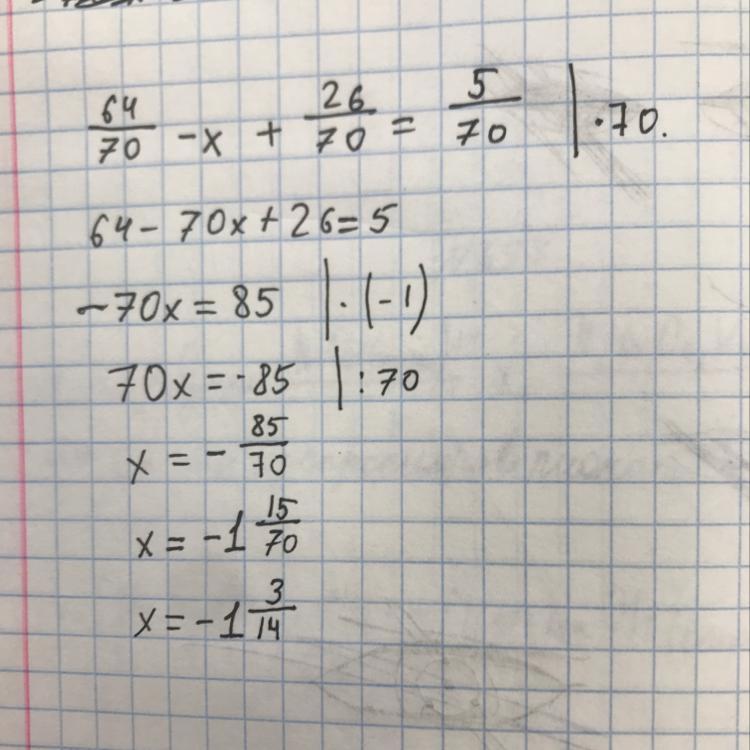 64/70 - x + 26/70 = 5/70 | · 70.
64 - 70x + 26 = 5
-70x = 85 | · (-1)
70x = -85 | : 70
x = - 85/70
x = -1 15/70
x = -1 3/14